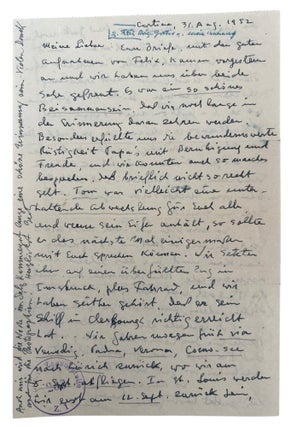 Cortina, 31. Aug. 1952
Meine Lieben: Eure Briefe, mit den guten
Aufnahmen von Felix, kamen vorgestern
an und wir haben uns über beide
sehr gefreut. Es war ein so schönes
Beisammensein, dass wir noch lange in
der Erinnerung daran zehren werden.
Besonders erfüllte uns die bewundernswerte
Rüstigkeit Papa's mit Beruhigung und
Freude, und wir konnten auch so manches
besprechen, das brieflich nicht so recht
geht. Tom war vielleicht eine unter-
haltende Abwechslung für Euch alle
und wenn sein Eifer anhält, so sollte
er das nächste Mal einigermassen
mit Euch sprechen können. Wir setzten
ihn auf einen überfüllten Zug in
Innsbruck, plus Fahrrad, und wir
haben seither gehört, dass er sein
Schiff in Cherbourg richtig erreicht
hat. Wir fahren morgen früh via
Venedig, Padua, Verona, Como-see
nach Zürich zurück, wo wir am
Sept. abfliegen. In St. Louis werden
wir erst am 12. Sept. zurück sein,